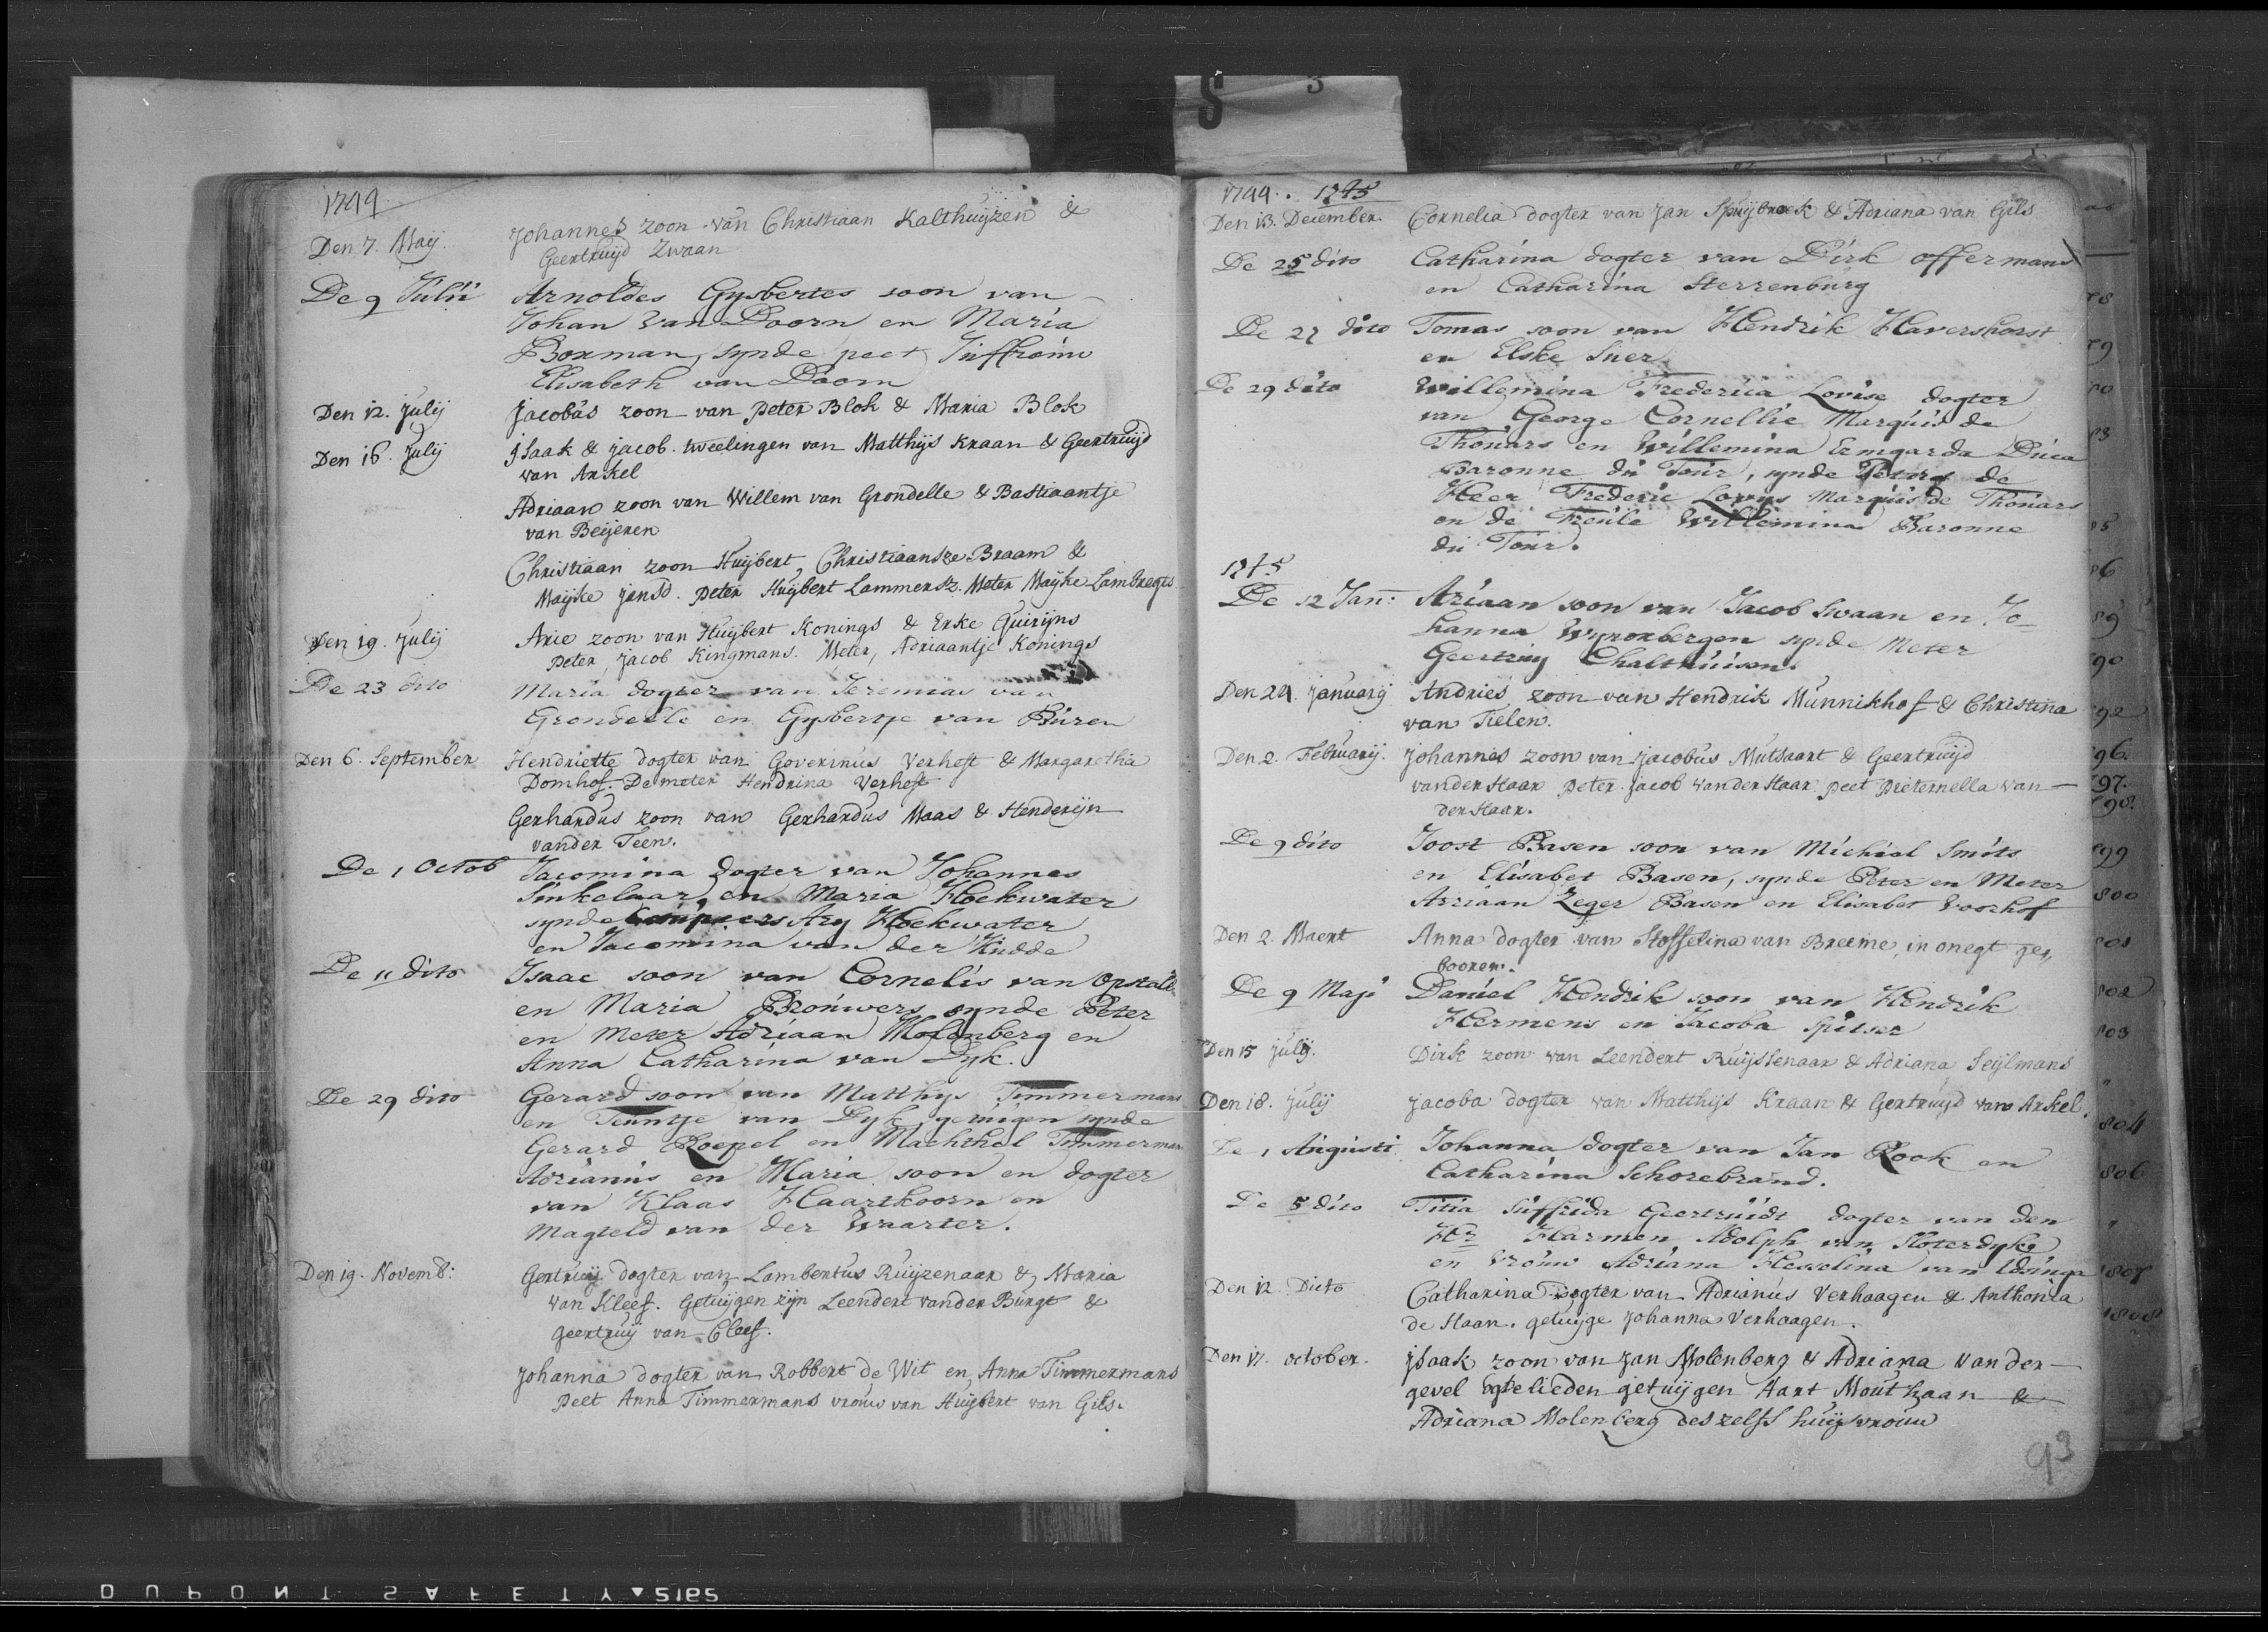 1744.
Den 7. Maij. Johannes zoon van Christiaan Kalthuijzen &
Geertruijd Zwaan
De 9 Julii Arnoldes Gysbertes soon van
Johan van Doorn en Maria
Boxman, synde peet Juffrouw
Elisabeth van Doorn
Den 12. Julij Jacobus zoon van Peter Blok & Maria Blok
Den 16. Julij Isaak & Jacob tweelingen van Matthijs Kraan & Geertruijd
van Arkel
Adriaan zoon van Willem van Grondelle & Bastiaantje
van Beijeren
Christiaan zoon Huijbert Christiaansze Braam &
Maijke Jansd. Peter Huijbert Lammersz. Meter Maijke Lambregts
Den 19. Julij Arie zoon van Huijbert Konings & Erke Quirijns
Peter, Jacob Kingmans. Meter, Adriaantje Konings
De 23 dito Maria dogter van Jeremias van
Grondelle en Gysbertje van Buren
Den 6. September Hendriette dogter van Goverinus Verhoft & Margaretha
Domhof. De meter Hendrina Verhoft
Gerhardus zoon van Gerhardus Maas & Henderijn
vander Teen.
De 1 Octob Jacomina dogter van Johannes
Sinkelaar, en Maria Hoekwater
synde Ary Hoekwater
en Jacomina van der Kudde
De 11 dito Isaac soon van Cornelis van Opstall
en Maria Brouwers synde Peter
en Meter Adriaan Molenberg en
Anna Catharina van Dyk.
De 29 dito Gerard soon van Matthys Timmermans
en Teuntje van Dyk, getuigen synde
Gerard Roepel en Machthel Timmerman
Adrianus en Maria soon en dogter
van Klaas Haarthoorn en
Magteld van der Waarter.
Den 19. Novemb: Gertruij dogter van Lambertus Ruijzenaar & Maria
van Kleef. Getuijgen zijn Leendert vander Burgt &
Geertruij van Cleef.
Johanna dogter van Robbert de Wit en Anna Timmermans
Peet Anna Timmermans vrouw van Huijbert van Gils.
1744. 1745
Den 13. December. Cornelia dogter van Jan Spuijbroek & Adriana van Gils
De 25 dito Catharina dogter van Dirk offermans
en Catharina Sterrenburg
De 27 dito Tomas soon van Hendrik Havershorst
en Elske Suer
De 29 dito Willemina Frederica Lovise dogter
van George Cornellie Marquis de
Thouars en Willemina Ermgarda Duca
Baronne du Tour, synde Peters de
Heer Frederic Lovys Marquis de Thouars
en de Freule Willemina Baronne
du Tour.
1745
De 12 Jan: Ariaan soon van Jacob Swaan en Jo-
hanna synde Meter
Geertruy Chalthuisen.
Den 24. Januarij Andries zoon van Hendrik Munnikhof & Christina
van Tielen.
Den 2. Februarij. Johannes zoon van Jacobus Mutsaart & Geertruijd
vander Haar Peter Jacob vander Haar peet Pieternella van-
der Haar.
De 9 dito Joost Basen soon van Michiel Smits
en Elisabet Basen, synde Peter en Meter
Ariaan Zeger Basen en Elisabet Voorhof
Den 2. Maert Anna dogter van Stoffelina van Breeme, in onegt ge,,
booren.
De 9 Maji Daniel Hendrik soon van Hendrik
Hermens en Jacoba Spitser
Den 15 Julij. Dirk zoon van Leendert Ruijssenaar & Adriana Seijlmans
Den 18. Julij Jacoba dogter van Matthijs Kraan & Gertruijd van Arkel.
De 1 Augusti Johanna dogter van Jan Rook en
Catharina Schorebrand.
De 5 dito Titia Suffrida Geertruidt dogter van den
Hr Harmen Adolph van Sloterdyke
en Vrouw Adriana Hesselina van Idsinga
Den 12. Dicto Catharina dogter van Adrianus Verhaagen & Anthonia
de Haan. getuijge Johanna Verhaagen.
Den 17. october. Isaak zoon van Jan Molenberg & Adriana van der-
gevel Egtelieden getuijgen Aart Mouthaan &
Adriana Molenberg deszelfs huijsvrouw
93
78
79
80
83
85
86
89
90
92
96.
97.
98.
99
800
801
802
803
"
804
806
"
807
1808
DUPONT SAFETY 5165